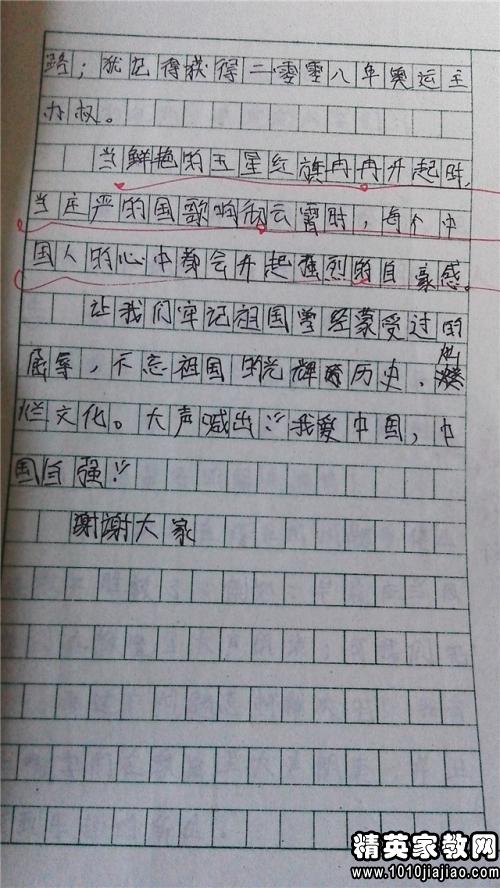 路；我记得获得二零零八年奥运主
办权。
当鲜艳的五星红旗冉冉升起时，
当庄严的国歌响彻云霄时，每个中
国人的心中都会升起强烈的自豪感。
让我们牢记祖国曾经蒙受过的
屈辱，不忘祖国的光辉历史、灿
烂文化。大声喊出：“我爱中国，中
国自强！”
谢谢大家
精英家教网
www.1010jiajiao.com